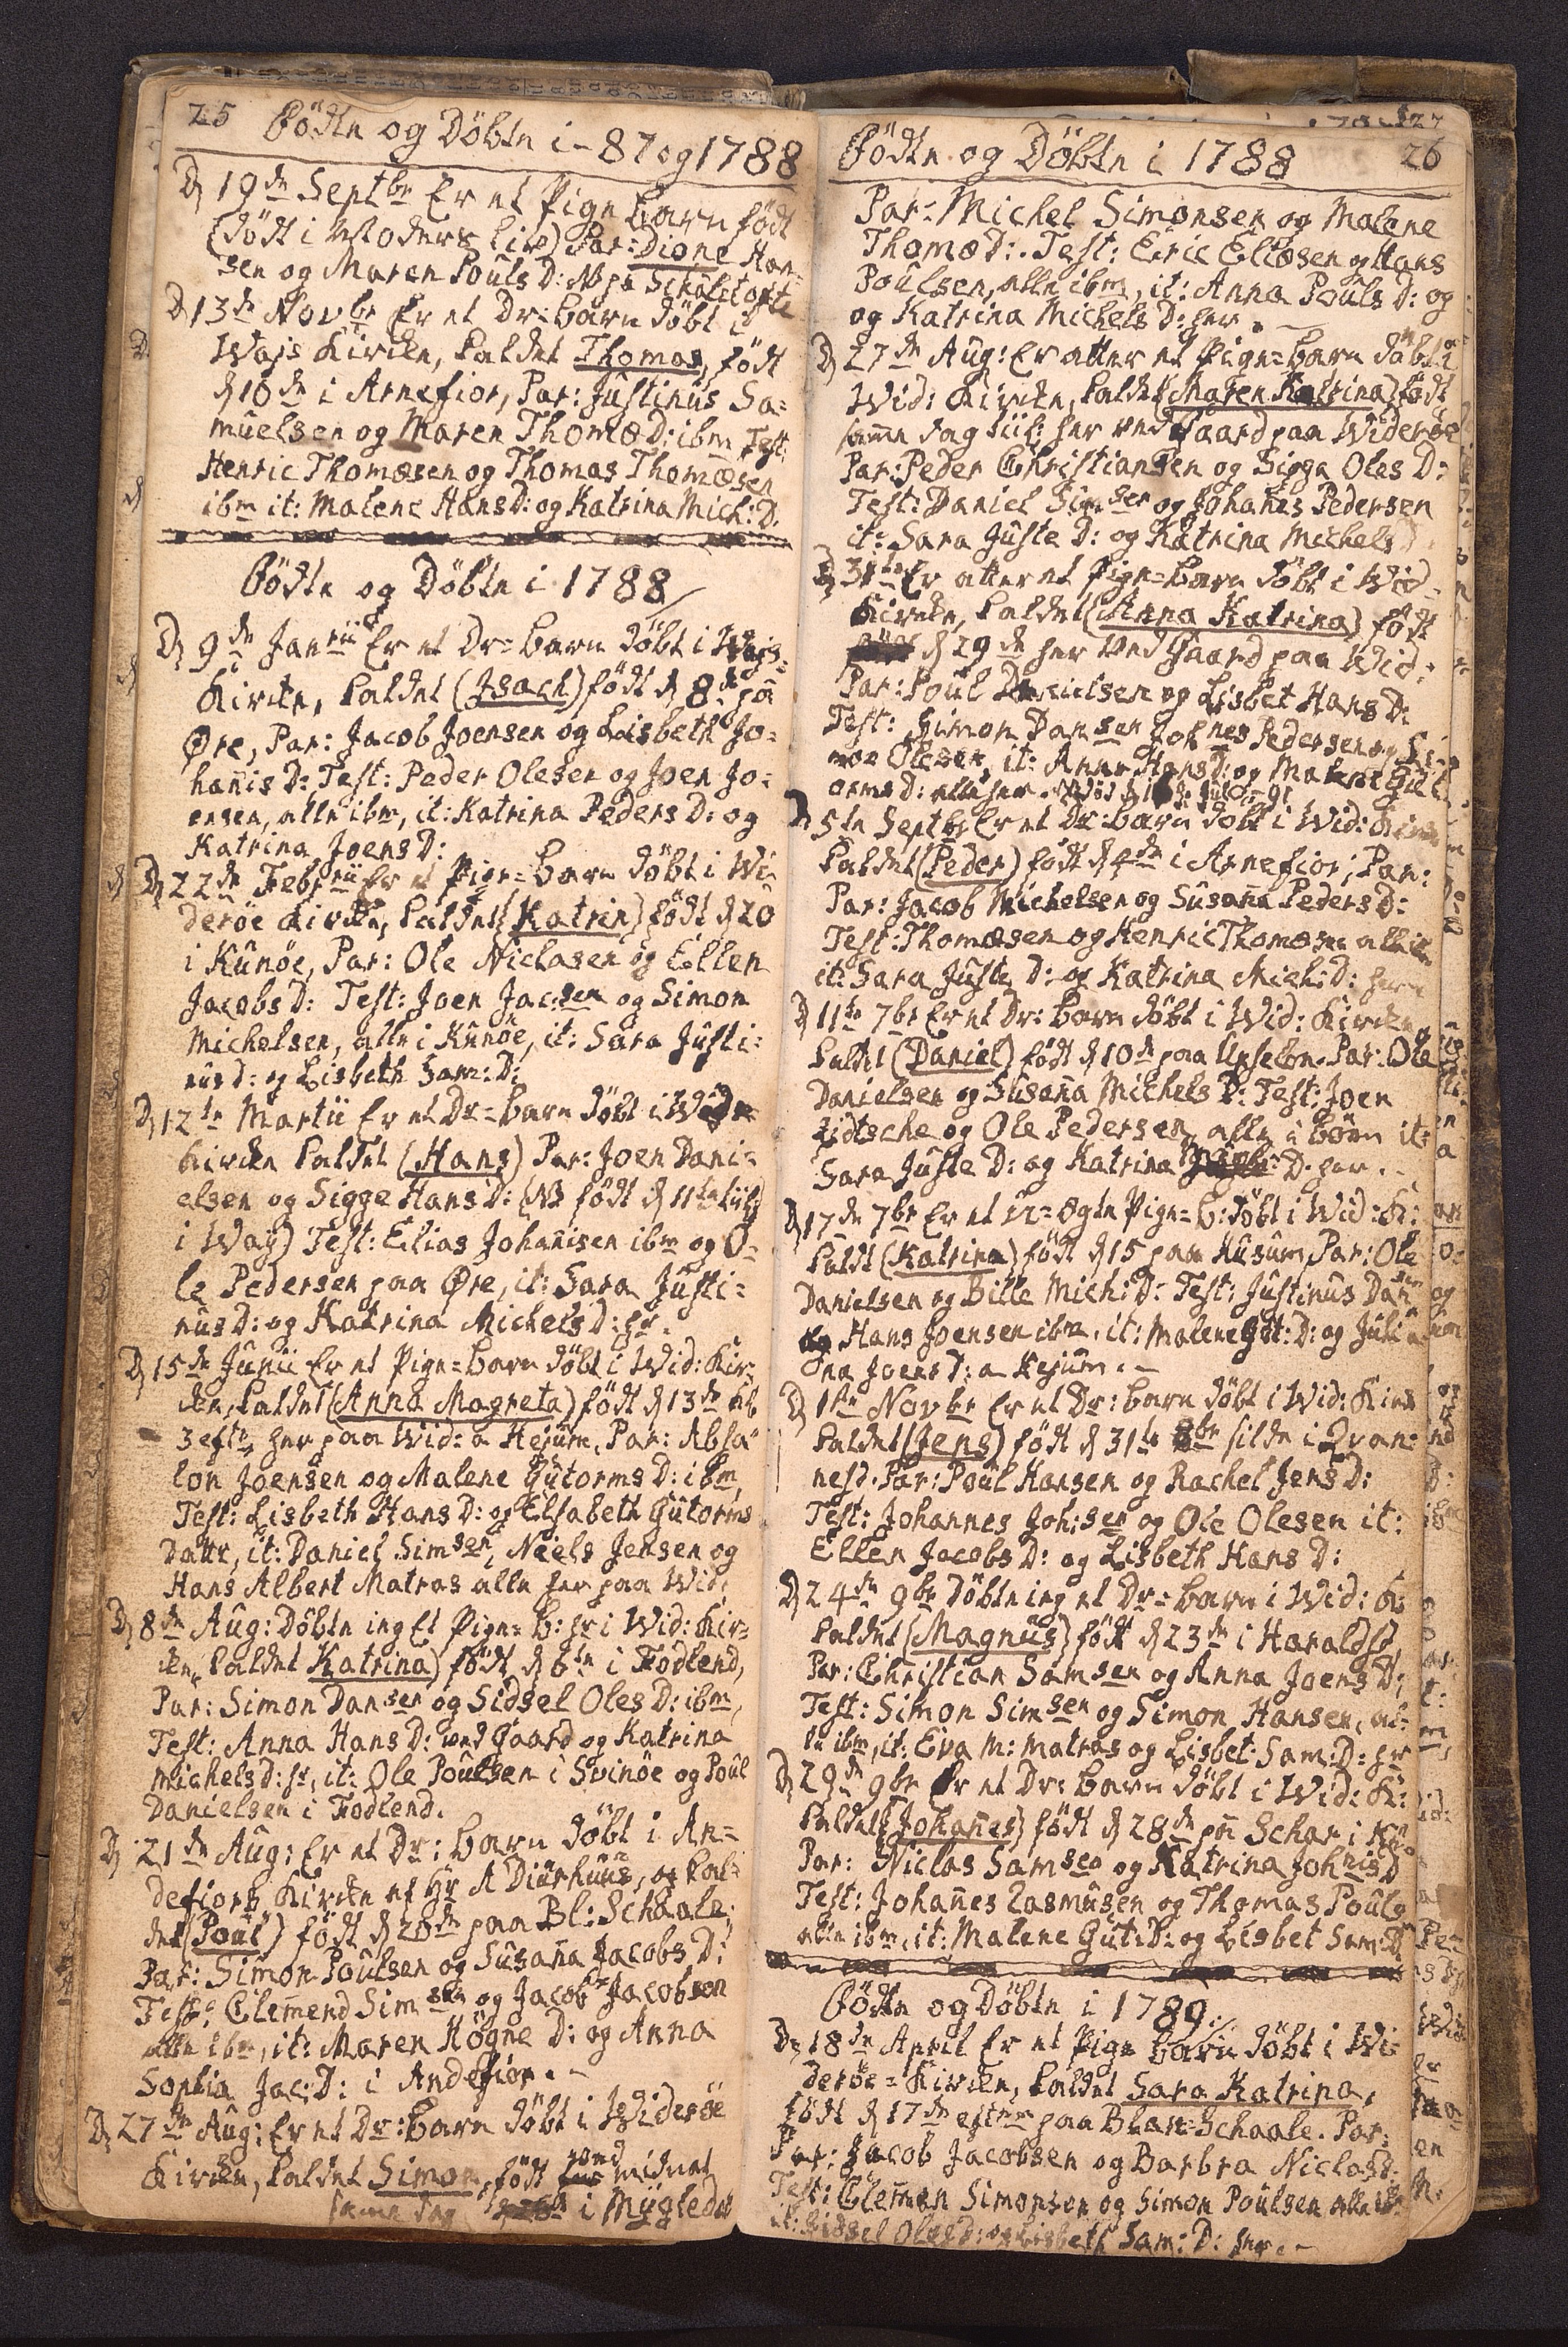 25 Födte og Döbte i -87 og 1788
D 19de Septbr Er et Pige barn födt
(dödt i Moders Liv) Par: Dione Han-
sen og Maren Pouls D: NB pa
D 13de Novbr Er et Dr=barn döbt i
Wajs Kirche, kaldet Thomas, födt
d 10de i Arnefior, Par: Justinus Sa=
muelsen og Maren Thomæ D: ibm Test:
Henric Thomæsen og Thomas Thomæsen
ibm it: Malene Hans D: og Katrina Mich: D.
Födte og Döbte i 1788
D 9de Janrii Er et Dr=barn döbt i Wajs=
Kirche, kaldet (Isach) födt d 8de pa
Øre, Par: Jacob Joensen og Lisbeth Jo=
hanis D: Test: Peder Olesen og Joen Jo=
ensen, alle ibm, it: Katrina Peders D: og
Katrina Joens D:
D 22de Febrrii Er et Pige=barn döbt i Wi-
deröe Kirche, kaldet (Katrin) födt d 20
i Kunöe, Par: Ole Niclasen og Ellen
Jacobs D: Test: Joen Jac:sen og Simon
Michelsen, alle i Kunöe, it: Sara Justi=
nus d: og Lisbeth Sam: D:
D 12te Martii Er et Dr=barn döbt i Wide
kirche kaldet (Hans) Par: Joen Dani=
elsen og Sigge Hans D: (NB födt d 11te
i Way) Test: Elias Johanisen ibm og O=
le Pedersen paa Øre, it: Sara Justi=
nus D: og Katrina Michels D: hr.
D 15de Junii Er et Pige=barn döbt i Wid: Kir=
che, kaldet (Anna Magreta) födt d 13de kl
3 eft, her paa Wid: a Hejum, Par: Absa=
lon Joensen og Malene Gutorms D: ibm,
Test: Lisbeth Hans D: og Elsabeth Gutorms
Datt, it: Daniel Simsen, Neels Jensen og
Hans Albert Matras alle her paa Wid:
D 8de Aug: Döbte ieg Et Pige=b: hr i Wid: Kir=
che, kaldet Katrina) födt d 6te i Fodlend,
Par: Simon Dansen og Sidsel Oles D: ibm,
Test: Anna Hans D: ved Gaard og Katrina
Michels D: hr, it: Ole Poulsen i Svinöe og Poul
Danielsen i Fodlend.
D 21de Aug: Er et Dr: barn döbt i An=
defiords Kirche af Hr A Diurhuus, og kal=
det (Poul) födt d 20de paa Bl: Schaale,
Par: Simon Poulsen og Susana Jacobs D:
Test: Clemend Simsen og Jacob Jacobsen
alle ibm, it: Maren Högne D: og Anna
Sophia Jac: D: i Andefior. -
D 27de Aug: Er et Dr: barn döbt i Wideröe
Kirche, kaldet Simon, födt ved midnat
samme dag i Mügledal
Födte og Döbte i 1788 26
Par: Michel Simonsen og Malene
Thomæ D: . Test: Eric Eliæsen og Hans
Poulsen, alle ibm, it: Anna Pouls D: og
og Katrina Michels D: her. -
D 27de Aug: Er atter et Pige=barn döbt i
Wid: Kirche, kaldet (Maren Katrina) födt
samme dag her ved Gaard paa Wideröe
Par: Peder Christiansen og Sigga Oles D:
Test: Daniel Simsen og Johanes Pedersen
it: Sara Juste D: og Katrina Michels D.
D 31te Er atter et Pige=barn döbt i Wid=
Kirche, kaldet (Anna Katrina) födt
d 29de her ved Gaard paa Wid:
Par: Poul Danielsen og Lisbet Hans D:
Test: Simon Dansen Johnes Pedersen og Si=
mon Olesen, it: Anna Hans D: og Malene Gut
orms D: alle her.
D 5te Septbr Er et Dr: barn döbt i Wid: Kirch
kaldet (Peder) födt d 4de i Arnefior; Par:
Par: Jacob Michelsen og Susana Peders D:
Test: Thomæsen og Henric Thomæsen alle
it: Sara Juste D: og Katrina Mich: D: her
D 11te 7br Er et Dr: barn döbt i Wid: Kirche
kaldet (Daniel) födt d 10de paa Unselon. Par: Ole
Danielsen og Susana Michels D: Test: Joen
Zidtsche og Ole Pedersen, alle it:
Sara Juste D: og Katrina D: her. -
D 17de 7br Er et U=ægte Pige= b: döbt i Wid: K:
kaldt (Katrina) födt d 15 paa Husum, Par: Ole
Danielsen og Bille Mich: D: Test: Justinus Dansen
og Hans Joensen ibm, it: Malene Gut: D: og Juli
na Joens D: a Hejum. -
D 1te Novbr Er et Dr: barn döbt i Wid: Kirch
kaldet (Jens) födt d 31te 8br silde i Qvan=
nesd. Par: Poul Hansen og Rachel Jens D:
Test: Johannes Joh:sen og Ole Olesen it:
Ellen Jacobs D: og Lisbeth Hans D:
D 24de 9br Döbte ieg et Dr=barn i Wid: K:
kaldet (Magnus) födt d 23de i Haralds
Par: Christian Samsen og Anna Joens D:
Test: Simon Simsen og Simon Hansen, al=
le ibm, it: Eva M: Matras og Lisbet Sam: D: hr
D 29de 9br Er et Dr: barn döbt i Wid: K:
kaldet (Johanes) födt d 28de paa Schar i Kun
Par: Niclas Samsen og Katrina Johnis D
Test: Johanes Rasmusen og Thomas Pouls
alle ibm, it: Malene Gut: D: og Lisbet Sam: D
Födte og Döbte i 1789.
D 18de April Er et Pige barn döbt i Wi=
deröe=Kirche, kaldet Sara Katrina,
födt d 17de paa Blan=Schaale. Par:
Par: Jacob Jacobsen og Barbra Niclas D.
Test: Clemen Simonsen og Simon Poulsen alle ibm
it: Sidsel Oles D: og Lisbeth Sam: D: her. -